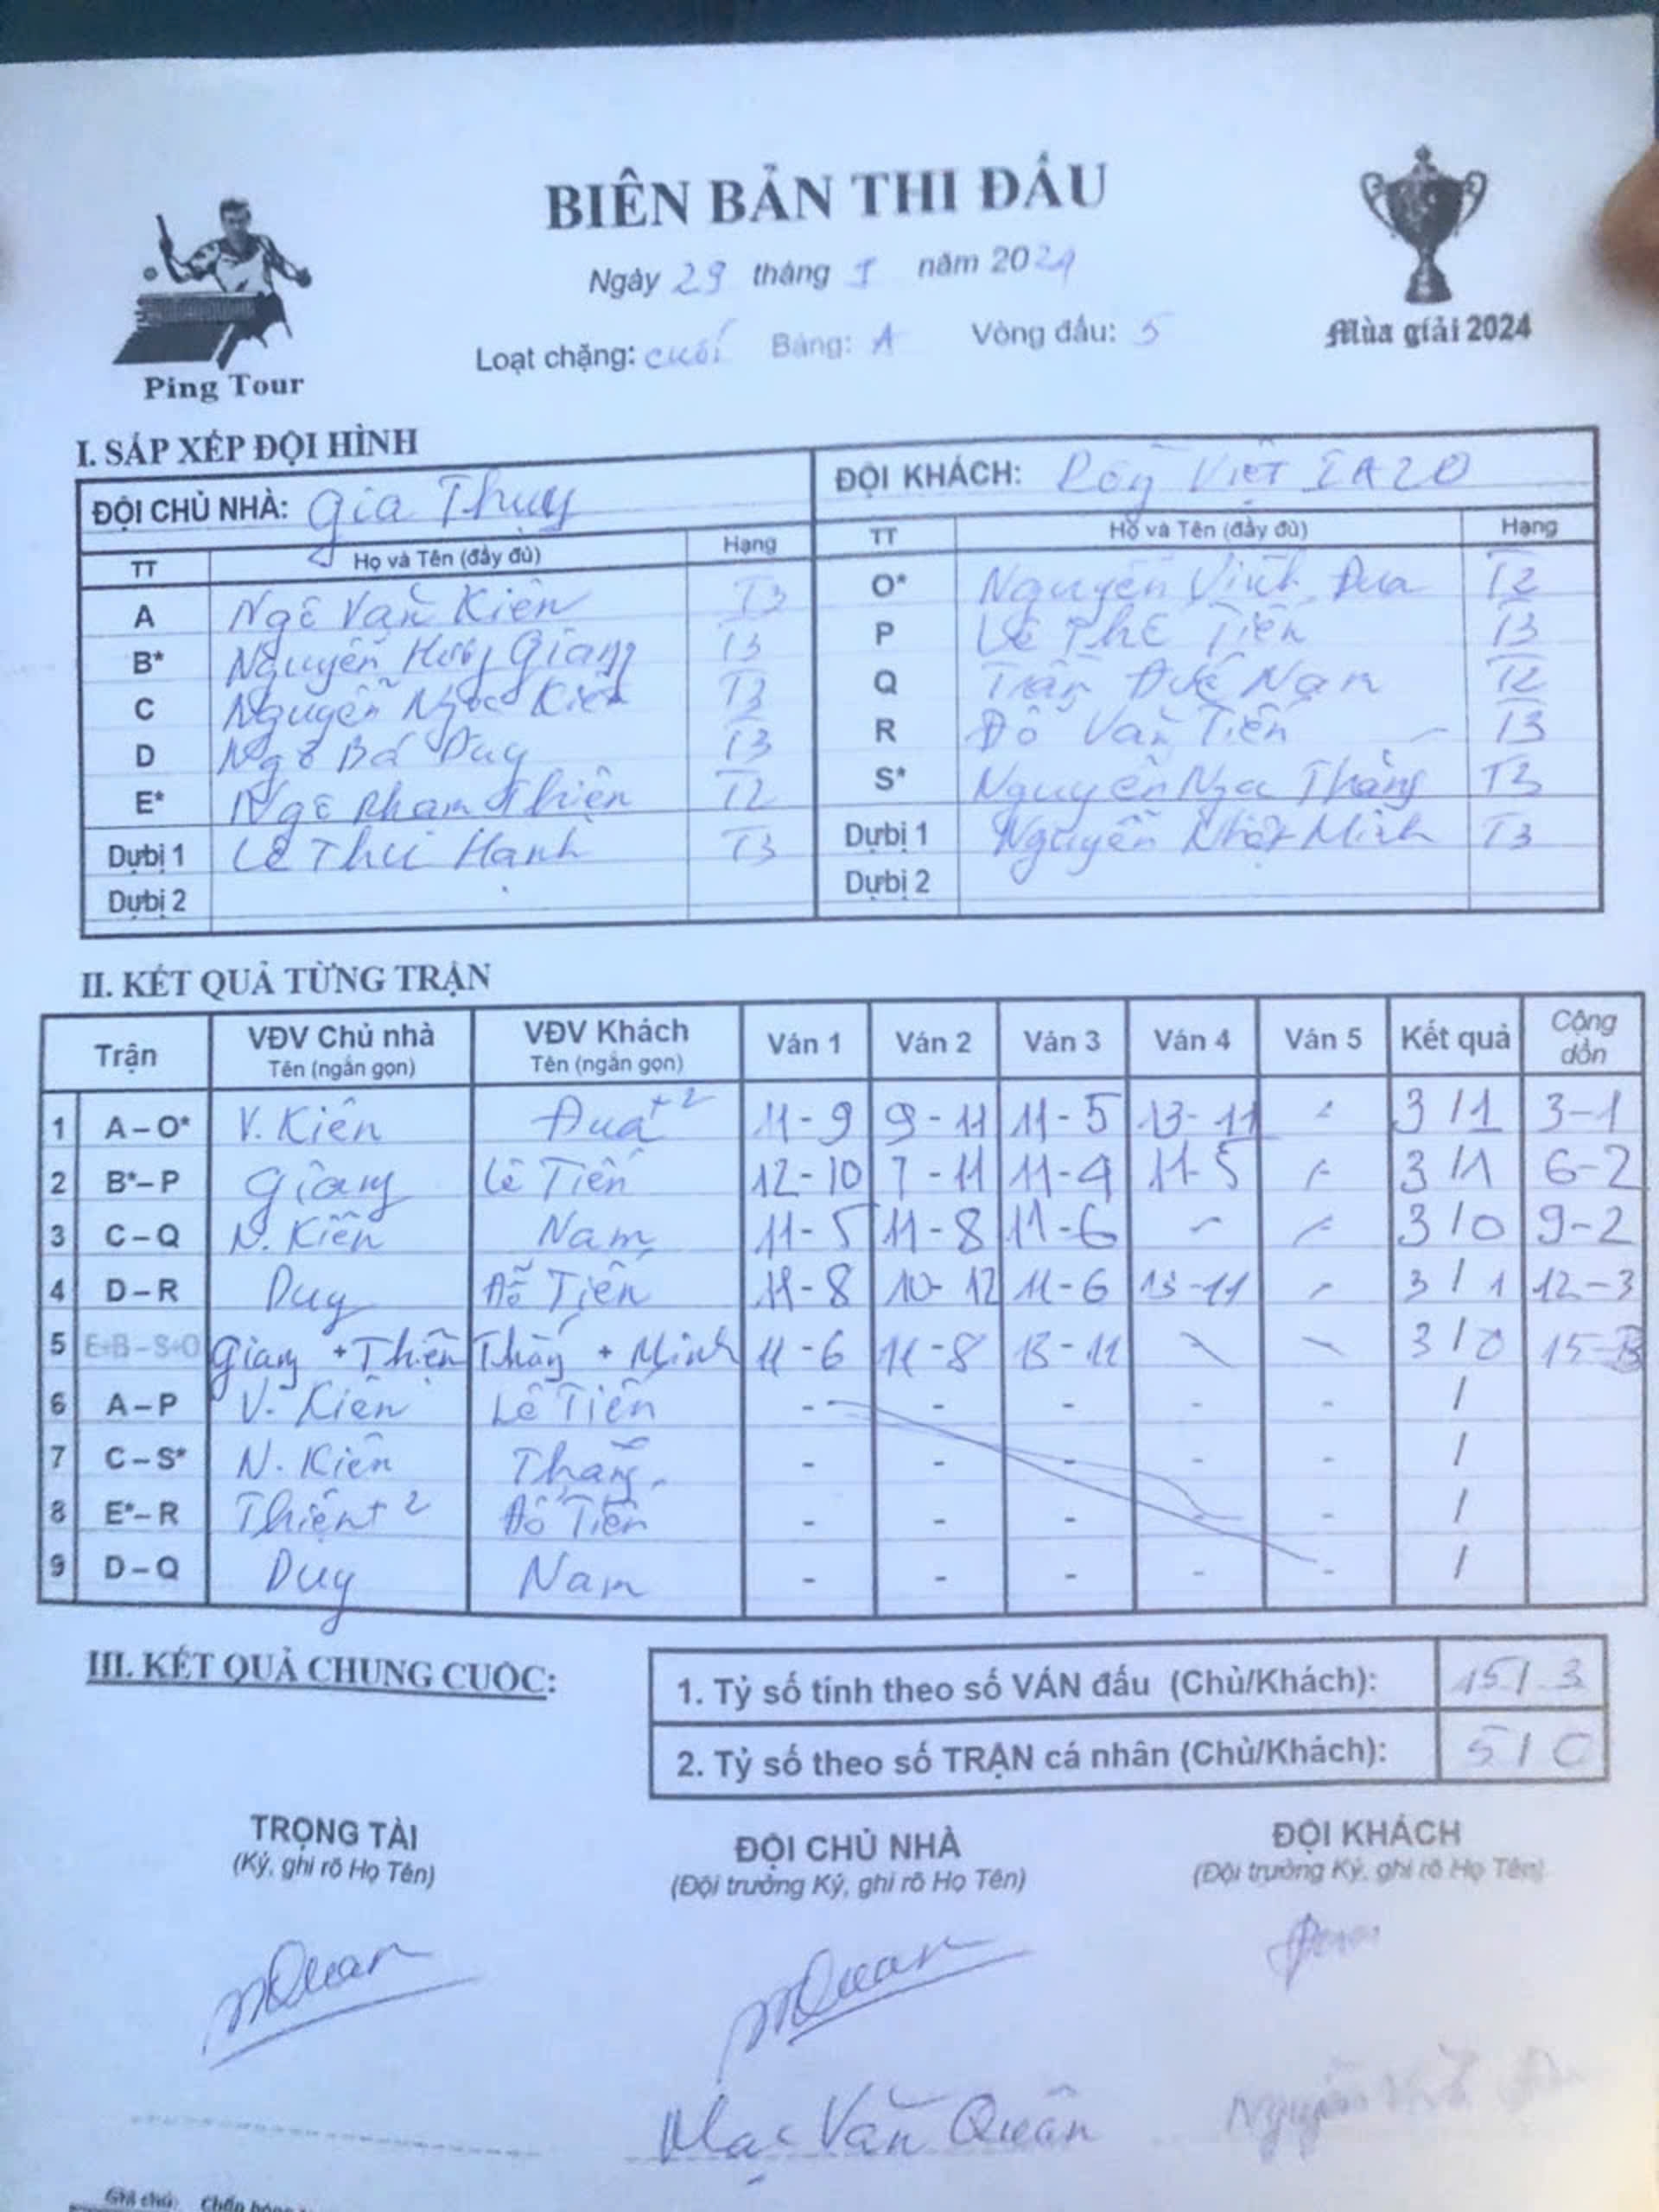 BIÊN BẢN THI ĐẤU
Ngày 29 tháng năm 2024
Loạt chặng: cuối Bảng: A Vòng đấu: 5
Ping Tour
Mùa giải 2024
I. SẮP XẾP ĐỘI HÌNH
ĐỘI CHỦ NHÀ: Gia Thụy ĐỘI KHÁCH: Việt
TT Họ và Tên (đầy đủ) Hạng TT Họ và Tên (đầy đủ) Hạng
A Ngô Văn Kiên T3 O* Nguyễn Vinh Đua T2
B* Nguyễn Giang T3 P Lê Thế Tiến T3
C Nguyễn Ngọc Kiên T3 Q Trần Đức Nam T2
D Ngô Bá Duy T3 R Đỗ Văn Tiến T3
E* Ngô Phạm Thiện T2 S* Nguyễn Ngọc Thắng T3
Dựbị 1 Lê Thu Hạnh T3 Dựbị 1 Nguyễn Nhật Minh T3
Dựbị 2 Dựbị 2
II. KẾT QUẢ TỪNG TRẬN
Trận VĐV Chủ nhà Tên (ngắn gọn) VĐV Khách Tên (ngắn gọn) Ván 1 Ván 2 Ván 3 Ván 4 Ván 5 Kết quả Cộng dồn
1 A – O* V. Kiên Đua +2 11 - 9 9 - 11 11 - 5 13 - 11 - 3 / 1 3-1
2 B*– P Giang Lê Tiến 12 - 10 7 - 11 11 - 4 11 - 5 - 3 / 1 6-2
3 C – Q N. Kiên Nam 11 - 5 11 - 8 11 - 6 - - 3 / 0 9-2
4 D – R Duy Đỗ Tiến 11 - 8 10 - 12 11 - 6 13 - 11 - 3 / 1 12-3
5 E+B – S+O Giang + Thiện Thắng + Minh 11 - 6 11 - 8 13 - 11 - - 3 / 0 15-3
6 A – P V. Kiên Lê Tiến - - - - - /
7 C – S* N. Kiên Thắng - - - - - /
8 E*– R Thiện +2 Đỗ Tiến - - - - - /
9 D – Q Duy Nam - - - - - /
III. KẾT QUẢ CHUNG CUỘC:
1. Tỷ số tính theo số VÁN đấu (Chủ/Khách): 15 / 3
2. Tỷ số theo số TRẬN cá nhân (Chủ/Khách): 5 / 0
TRỌNG TÀI ĐỘI CHỦ NHÀ ĐỘI KHÁCH
(Ký, ghi rõ Họ Tên) (Đội trưởng Ký, ghi rõ Họ Tên) (Đội trưởng Ký, ghi rõ Họ Tên)
Mạc Văn Quân Nguyễn
Ghi chú: